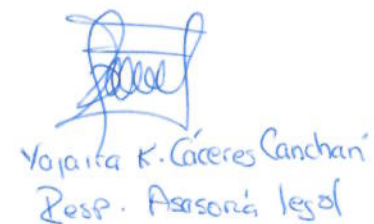 Yajaira K. Cáceres Canchari
Resp. Asesoria legal